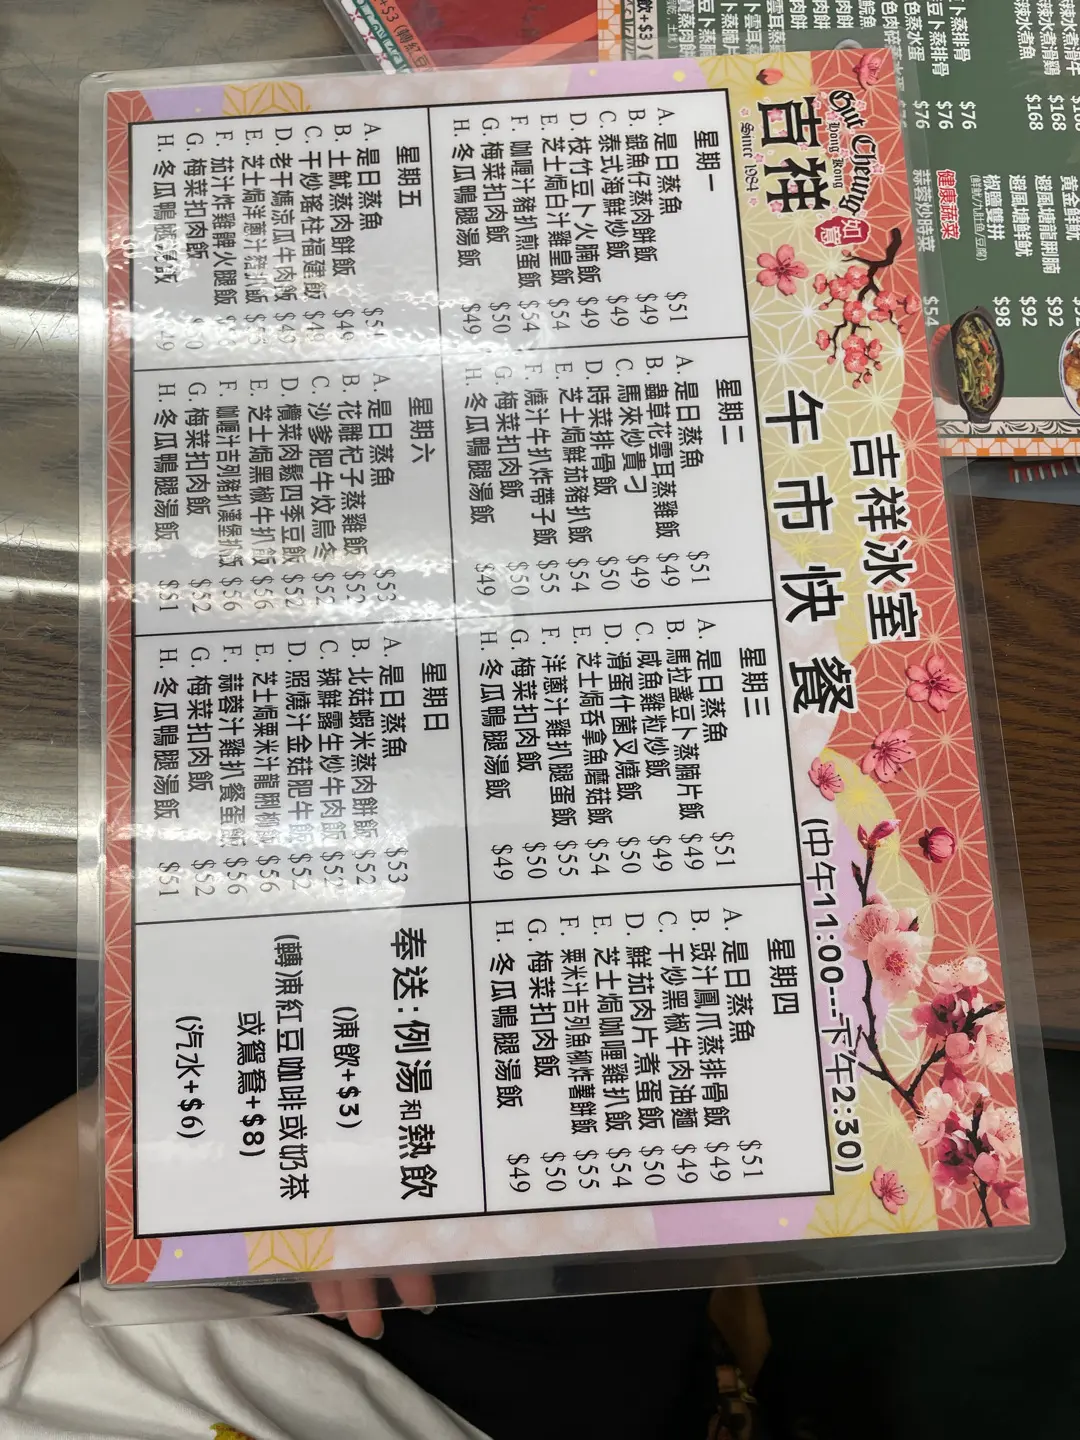 Gut Cheung
Hong Kong
吉祥
如意
Since 1984
吉祥冰室
午市快餐
(中午11:00---下午2:30)
星期一
A. 是日蒸魚 $51
B. 銀魚仔蒸肉餅飯 $49
C. 泰式海鮮炒飯 $49
D. 枝竹豆卜火腩飯 $49
E. 芝士焗白汁雞皇飯 $54
F. 咖喱汁豬扒煎蛋飯 $54
G. 梅菜扣肉飯 $50
H. 冬瓜鴨腿湯飯 $49
星期二
A. 是日蒸魚 $51
B. 蟲草花雲耳蒸雞飯 $49
C. 馬來炒貴刁 $49
D. 時菜排骨飯 $50
E. 芝士焗鮮茄豬扒飯 $54
F. 燒汁牛扒炸帶子飯 $55
G. 梅菜扣肉飯 $50
H. 冬瓜鴨腿湯飯 $49
星期三
A. 是日蒸魚 $51
B. 馬拉盞豆卜蒸腩片飯 $49
C. 咸魚雞粒炒飯 $49
D. 滑蛋什菌叉燒飯 $50
E. 芝士焗吞拿魚蘑菇飯 $54
F. 洋蔥汁雞扒腿蛋飯 $55
G. 梅菜扣肉飯 $50
H. 冬瓜鴨腿湯飯 $49
星期四
A. 是日蒸魚 $51
B. 豉汁鳳爪蒸排骨飯 $49
C. 干炒黑椒牛肉油麵 $49
D. 鮮茄肉片煮蛋飯 $50
E. 芝士焗咖喱雞扒飯 $54
F. 粟米汁吉列魚柳炸薯餅飯 $55
G. 梅菜扣肉飯 $50
H. 冬瓜鴨腿湯飯 $49
星期五
A. 是日蒸魚
B. 土魷蒸肉餅飯 $49
C. 干炒瑤柱福建飯
D. 老干媽涼瓜牛肉飯
E. 芝士焗洋蔥汁豬扒飯
F. 茄汁炸雞髀火腿飯
G. 梅菜扣肉飯
H. 冬瓜鴨腿湯飯
星期六
A. 是日蒸魚 $53
B. 花雕杞子蒸雞飯 $52
C. 沙爹肥牛炆烏冬 $52
D. 欖菜肉鬆四季豆飯 $52
E. 芝士焗黑椒牛扒飯 $56
F. 咖喱汁吉列豬扒漢堡扒飯 $56
G. 梅菜扣肉飯 $52
H. 冬瓜鴨腿湯飯 $51
星期日
A. 是日蒸魚 $53
B. 北菇蝦米蒸肉餅飯 $52
C. 辣鮮露生炒牛肉飯 $52
D. 照燒汁金菇肥牛飯 $52
E. 芝士焗粟米汁龍脷柳飯 $56
F. 蒜蓉汁雞扒餐蛋飯 $56
G. 梅菜扣肉飯 $52
H. 冬瓜鴨腿湯飯 $51
奉送:例湯和熱飲
(凍飲+$3)
(轉凍紅豆咖啡或奶茶
或鴛鴦+$8)
(汽水+$6)
健康蔬菜
蒜蓉炒時菜 $54
黃金鮮魷 $92
避風塘龍脷腩 $92
避風塘鮮魷 $92
椒鹽雙拼 $98
(鮮魷/九肚魚/豆腐)
$168
$168
$76
$76
$76